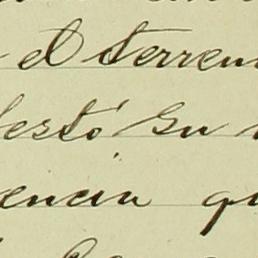 el terren
festó su
encia qu